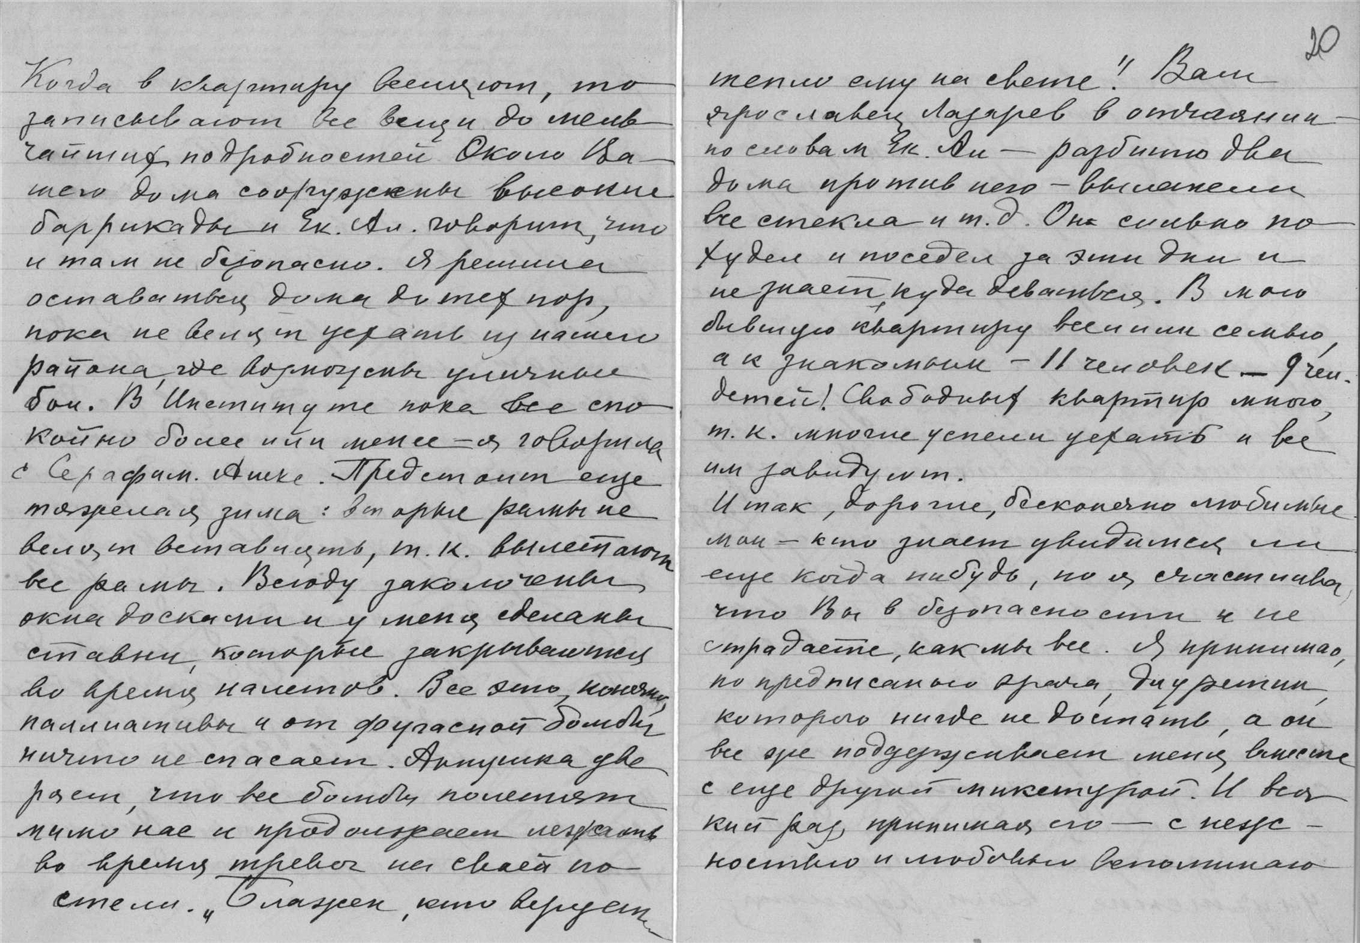 Когда в квартиру вселяют, то
записывают все вещи до мель-
чайших подробностей. Около Ва-
шего дома сооружены высокие
баррикады и Ек. Ал. говорит, что
и там не безопасно. Я решила
оставаться дома до тех пор,
пока не велят уехать из нашего
района, где возможны уличные
бои. В Институте пока все спо-
койно более или менее – я говорила
с Серафим. Алекс. Предстоит еще
тяжелая зима: вторые рамы не
велят вставлять, т.к. вылетают
все рамы. Всюду заколочены
окна досками и у меня сделаны
ставни, которые закрываются
во время налетов. Все это, конечно,
паллиативы и от фугасной бомбы
ничто не спасает. Аннушка уве
ряет, что все бомбы полетят
мимо нас и продолжает лежать
во время тревог на своей по-
стели. „Блажен, кто верует –
20
тепло ему на свете!" Ваш
ярославец Лазарев в отчаянии –
по словам Ек. Ал – разбито два
дома против него – вылетели
все стекла и т.д. Он сильно по-
худел и поседел за эти дни и
не знает, куда деваться. В мою
бывшую квартиру вселили семью,
а к знакомым – 11 человек – 9 чел.
детей! Свободных квартир много,
т.к. многие успели уехать и все
им завидуют.
Итак, дорогие, бесконечно любимые
мои – кто знает увидимся ли
еще когда нибудь, но я счастлива,
что Вы в безопасности и не
страдаете, как мы все. Я принимаю,
по предписанию врача, диуретин,
которого нигде не достать, а он
все же поддерживает меня, вместе
с еще другой микстурой. И вся-
кий раз, принимая его – с неж-
ностью и любовью вспоминаю